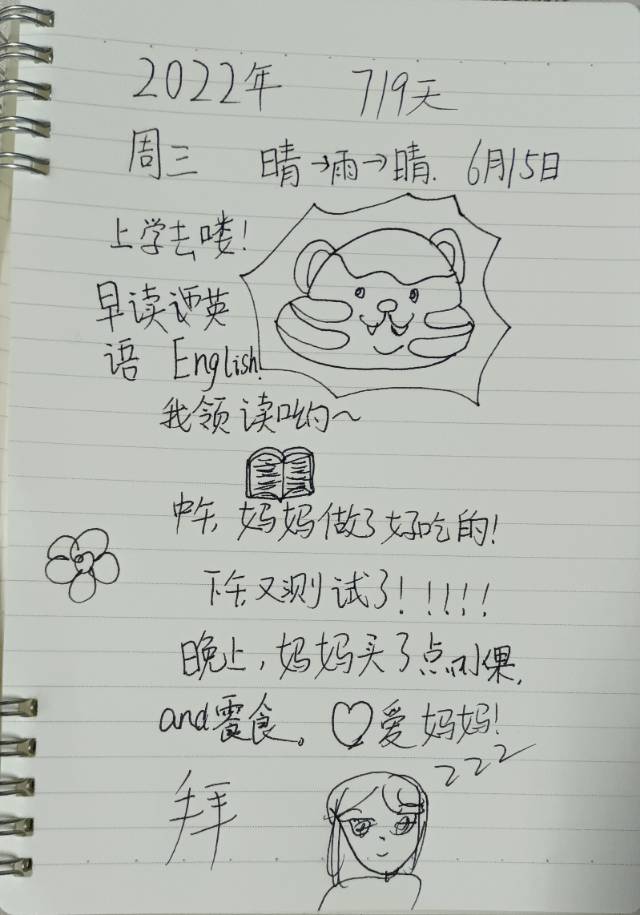 2022年 719天
周三 晴→雨→晴. 6月15日
上学去喽！
早读 英
语 English.
我领读哟～
中午, 妈妈做了好吃的！
下午又测试了！！！！！
晚上，妈妈买了点水果,
and零食。♡爱妈妈！
zzz
拜